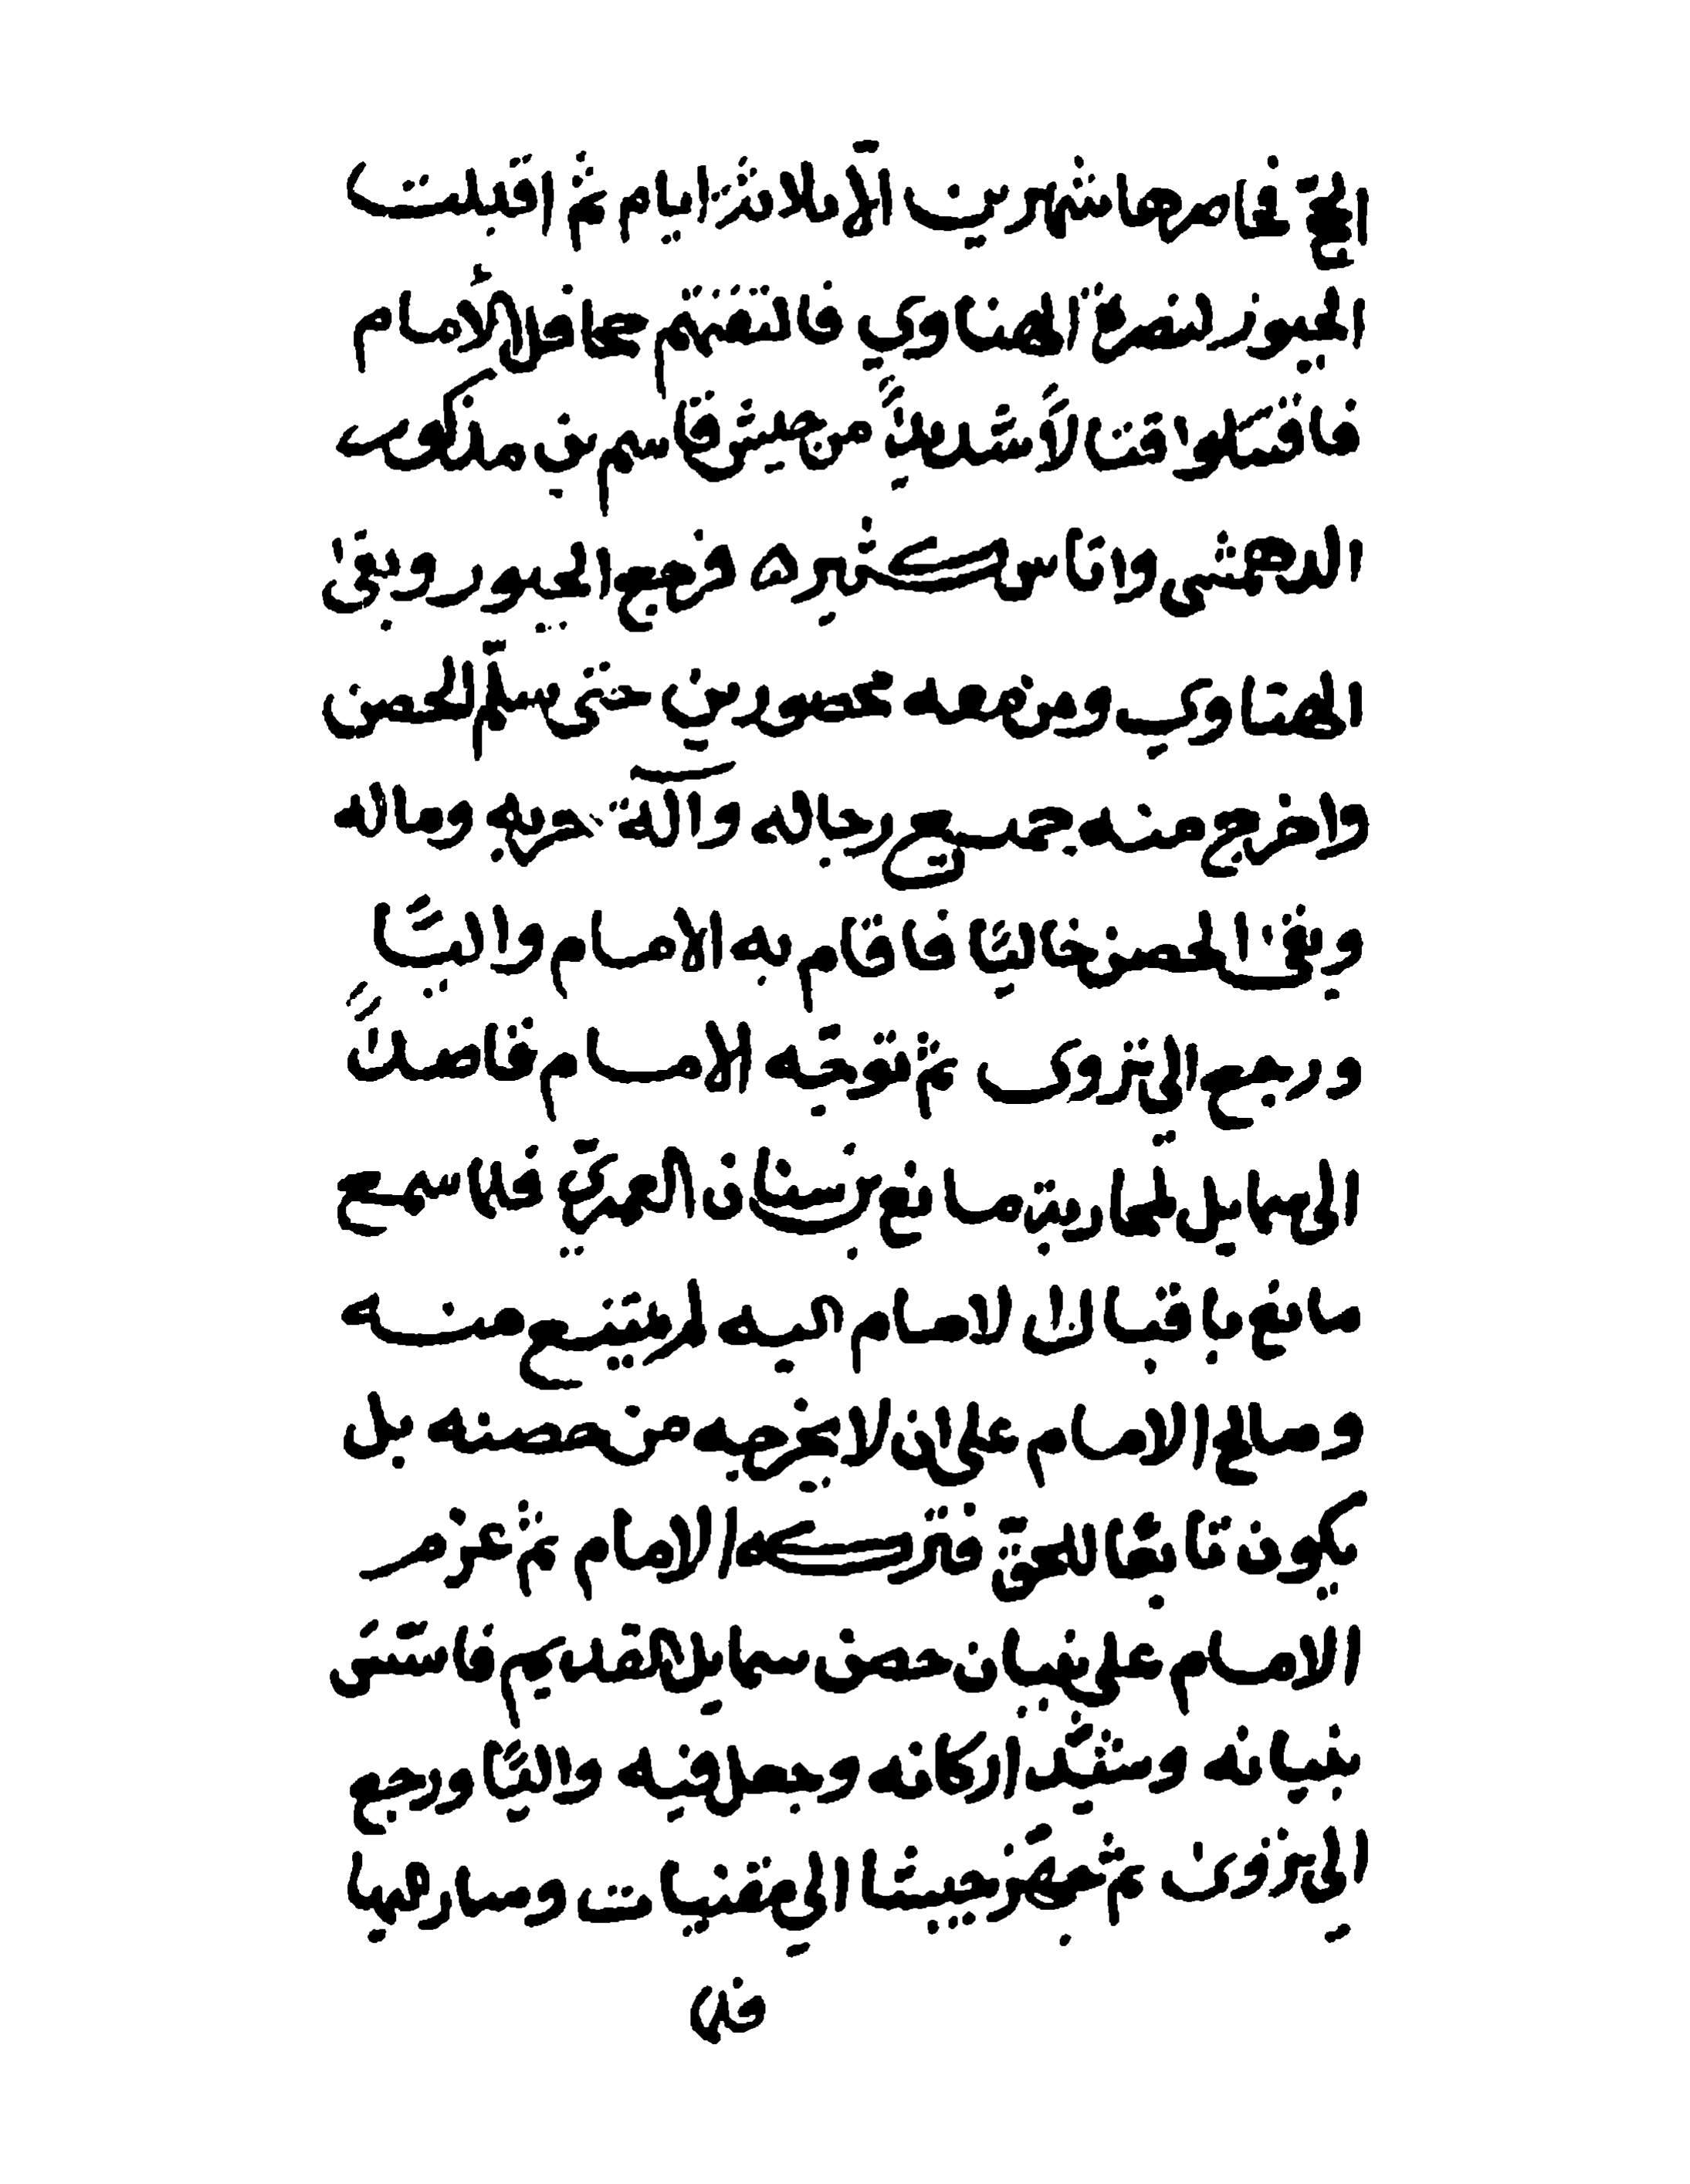 الحق فحاصرها شهرين الّا ثلاثة ايام ثم اقبلت
الجبور لنصرة الهناوي فالتقتهم جحافل الأمام
فاقتتلوا قتالاً شديداً من جيش قاسم بن مذكور
الدهمشي واناس كثيره فرجع الجبور وبقى
الهناوي ومن معه محصورين حتى سلّم الحصن
واخرج منه جميع رجاله وآلة حربه وماله
وبقى الحصن خاليًا فاقام به الامام واليًا
ورجع الى نزوى ثم توجّه الامام قاصداً
الى سمايل لمحاربة مانع بن سنان العميريّ فلما سمع
مانع باقبال الامام اليه لم يمتنع منه
وصالح الامام على ان لا يخرجه من حصنه بل
يكون تابعًا للحقّ فتركه الامام ثم عزم
الامام على بنيان حصن سمايل القديم فاسّس
بنيانه وشيّد اركانه وجعل فيه واليًا ورجع
الى نزوى ثم جهّز جيشا الى مقنيات وسار هميا
فلما